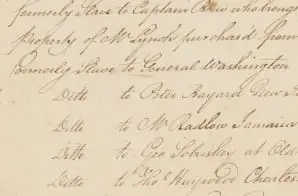 formerly Slave to Captain who brough
property of Mr Lynch purchard from
formerly Slave to General Washington
Ditto to Peter Bayard New
Ditto to Mr Radlow Jamaica
Ditto to Geo Sobriskey at Old
Ditto to Thos Haywood Charles